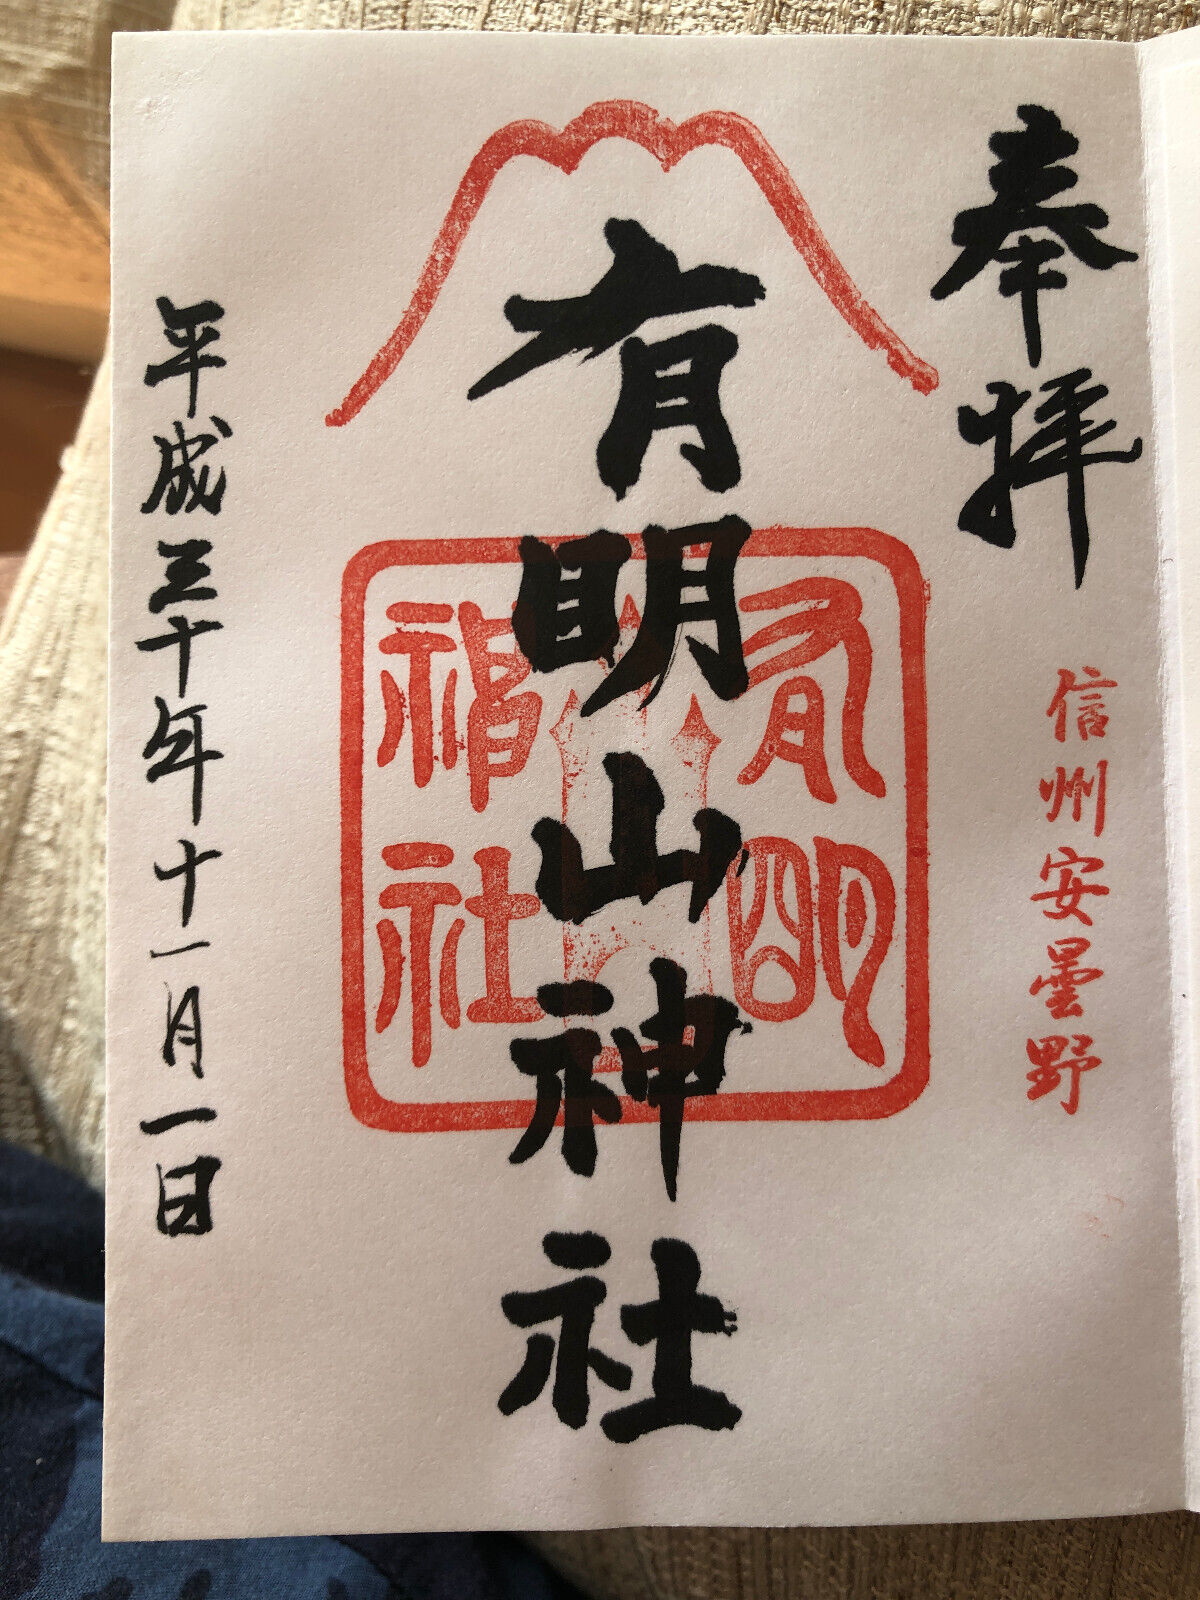 奉拝
信州安曇野
有明山神社
有明山神社
平成三十年十一月一日